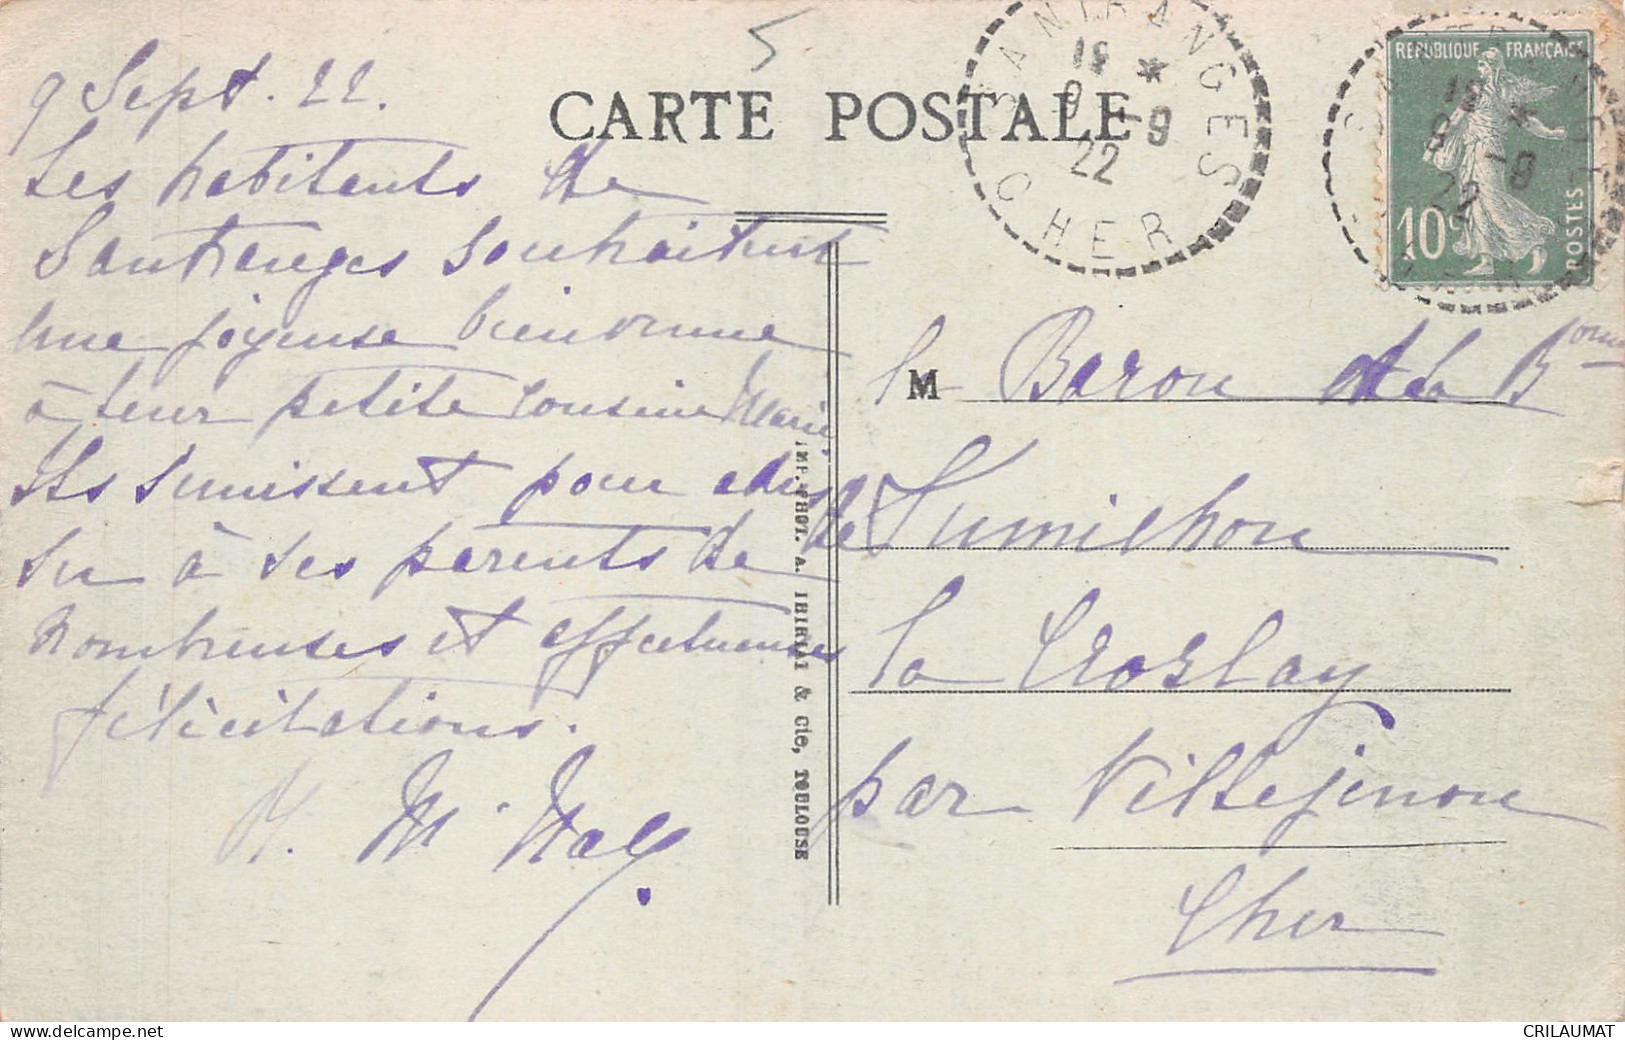 9 Sept. 22.
Les habitants de
Santranges souhaitent
une joyeuse bienvenue
à leur petite cousine Marie,
Ils s'unissent pour adres
ser à ses parents de
nombreuses et affectueuses
félicitations.
CARTE POSTALE
SANTRANGES
18 *
9 -9
22
CHER
REPUBLIQUE FRANÇAISE
10c
POSTES
18 *
9 -9
22
M le Baron et la Bonne
de
la
par Villegenon
Cher
IMP. PHOT. A. THIRIAT & Cie, TOULOUSE
delcampe.net
CRILAUMAT